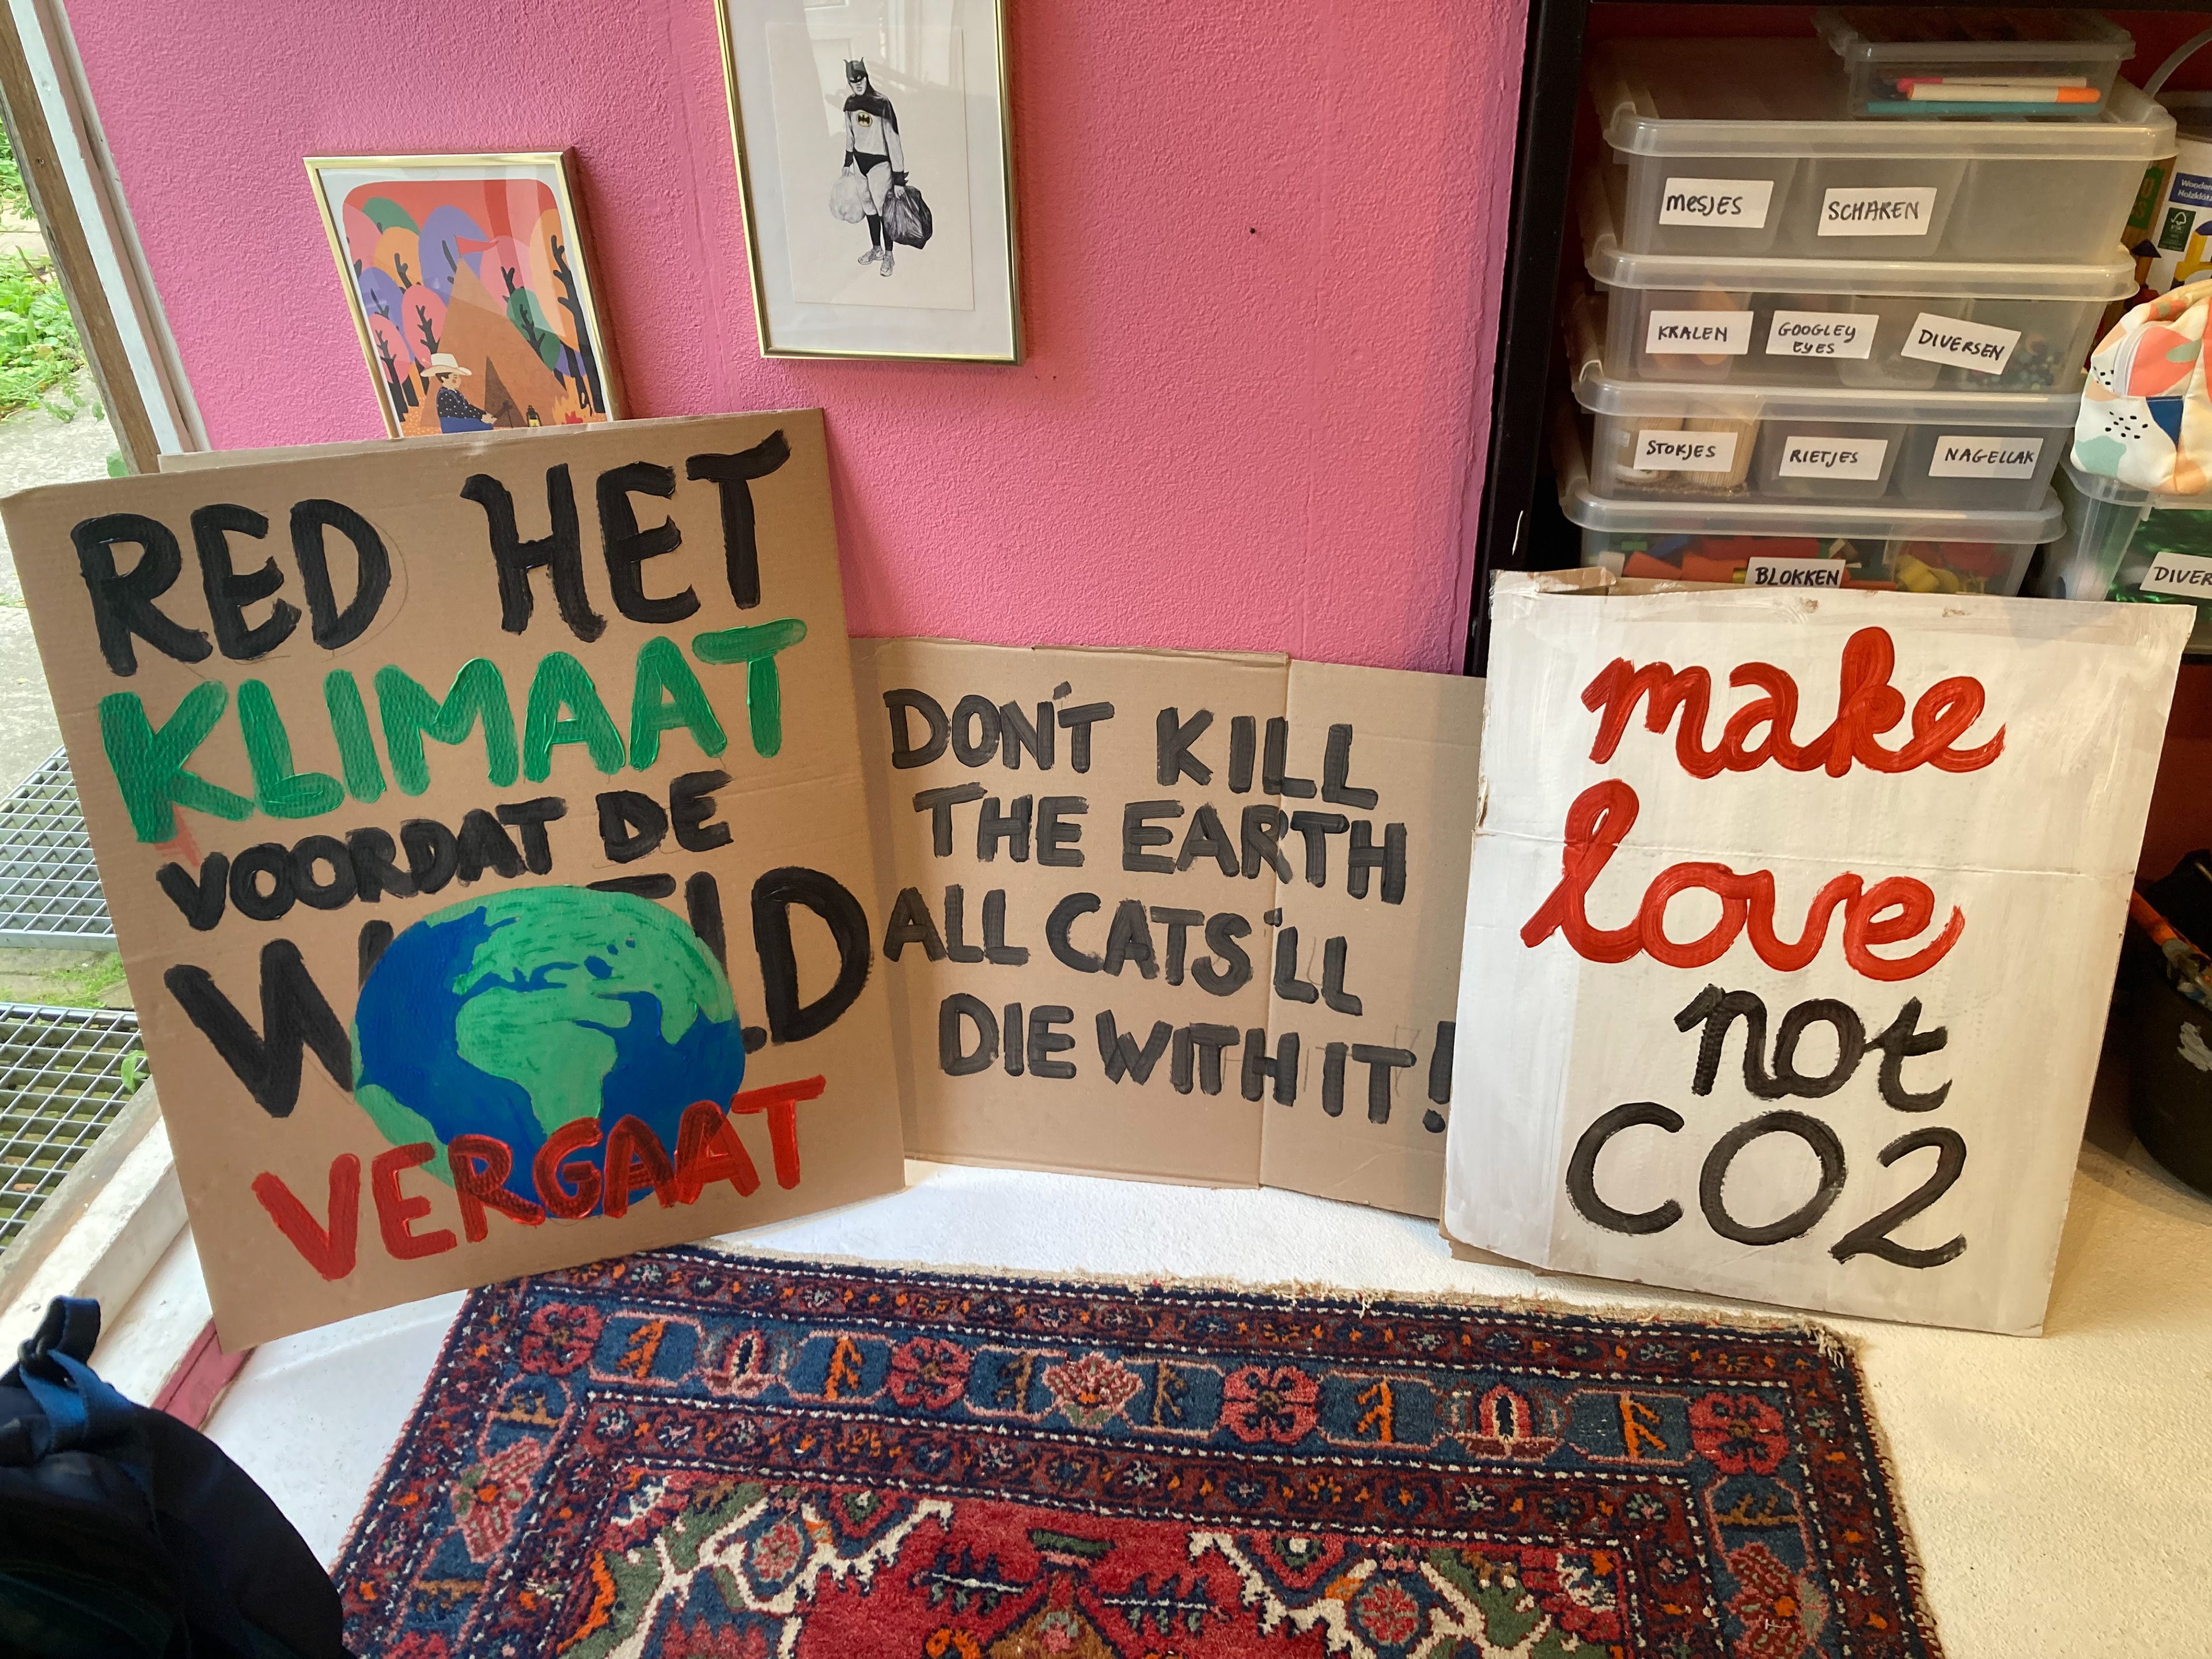 RED HET
KLIMAAT
VOORDAT DE
W ELD
VERGAAT
DON'T KILL
THE EARTH
ALL CATS'LL
DIE WITH IT!
make
love
not
CO2
MESJES
SCHAREN
KRALEN
GOOGLEY
EYES
DIVERSEN
STOKJES
RIETJES
NAGELLAK
BLOKKEN
DIVER
Wooden